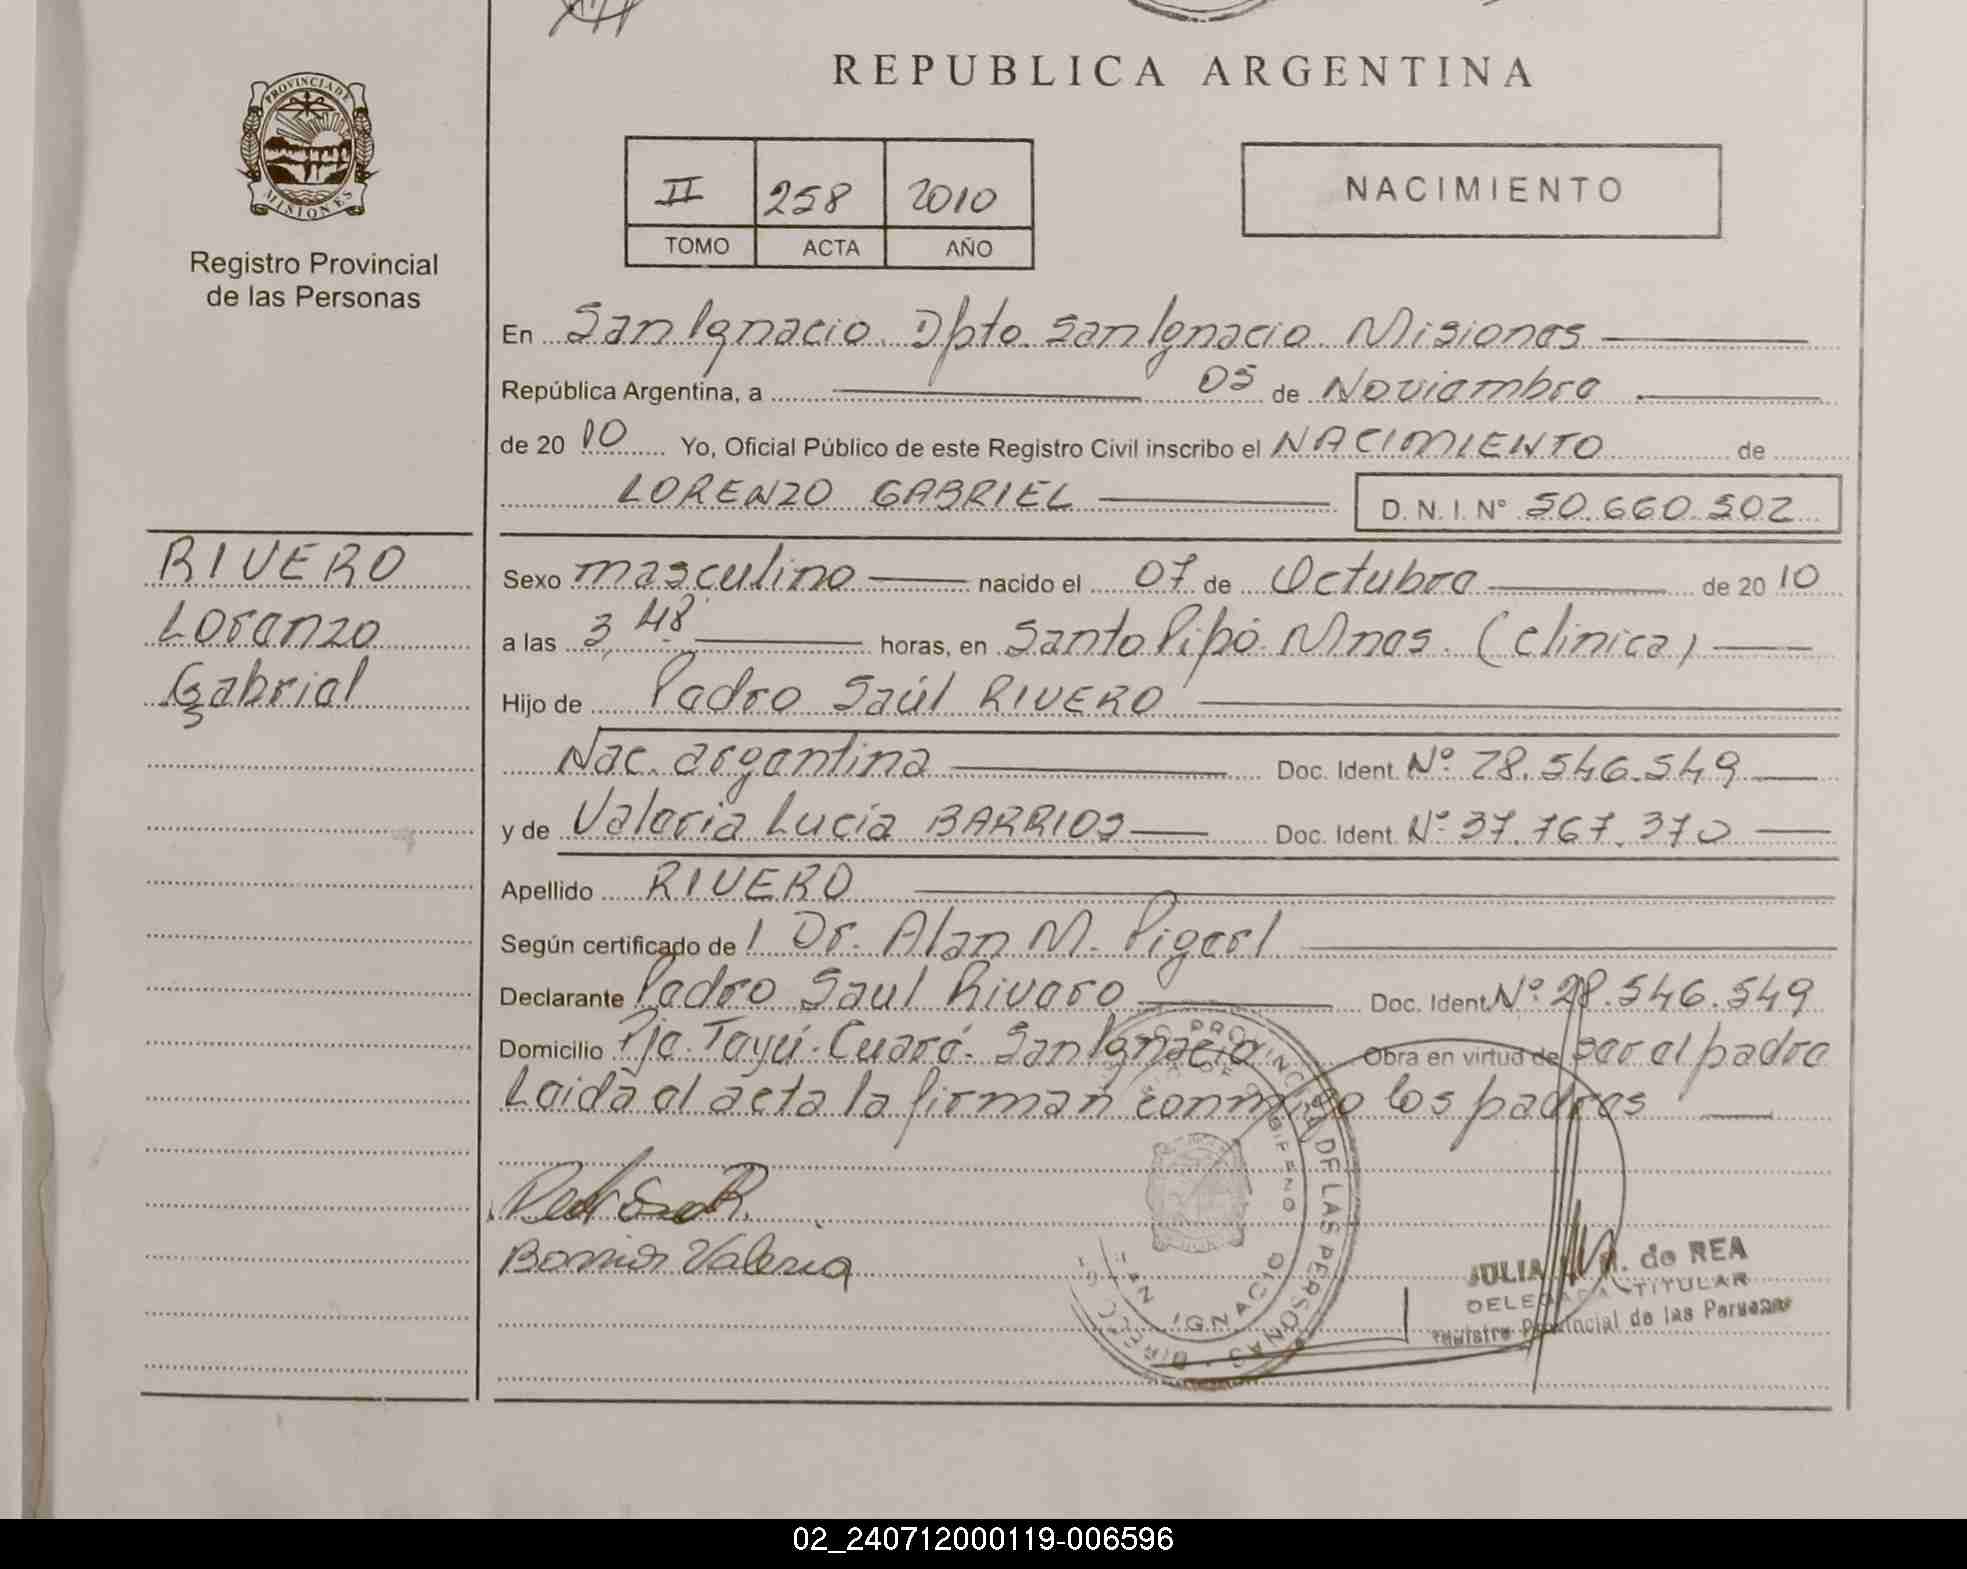 REPUBLICA ARGENTINA
PROVINCIA DE
MISIONES
Registro Provincial
de las Personas
II 258 2010
TOMO ACTA AÑO
NACIMIENTO
En San Ignacio Dpto. San Ignacio Misiones
República Argentina, a 05 de Noviembre
de 20 10 Yo, Oficial Público de este Registro Civil inscribo el NACIMIENTO de
LORENZO GABRIEL D. N. I. N° 50.660.502
RIVERO
Lorenzo
Gabriel
Sexo masculino nacido el 07 de Octubre de 20 10
a las 3,48 horas, en Santo Pipó Mnes. (clinica)
Hijo de Pedro Saúl RIVERO
Nac. argentina Doc. Ident. Nº 28.546.549
y de Valeria Lucía BARRIOS Doc. Ident. Nº 37.767.370
Apellido RIVERO
Según certificado de l Dr. Alan M. Pigerl
Declarante Pedro Saul Rivero Doc. Ident. Nº 28.546.549
Domicilio Pje. Tayú-Cuaré. San Ignacio Obra en virtud de ser el padre
Leida el acta la firman conmigo los padres
Barrios Valeria
SAN IGNACIO
JULIA de REA
DELEGADA TITULAR
Registro Provincial de las Personas
02_240712000119-006596